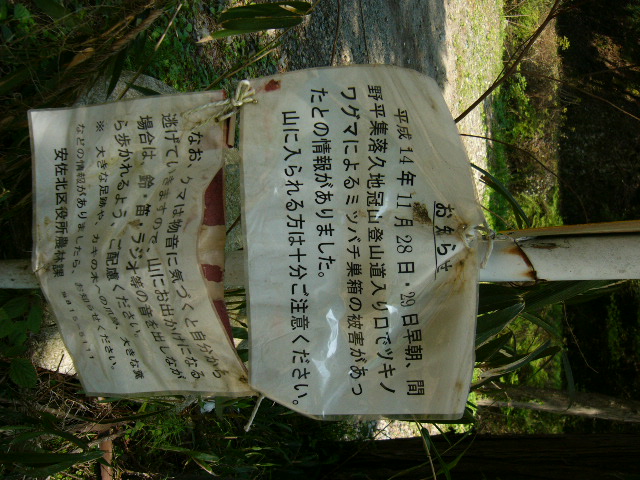 お知らせ
平成14年11月28日・29日早朝、間
野平集落久地冠山登山道入り口でツキノ
ワグマによるミツバチ巣箱の被害があっ
たとの情報がありました。
山に入られる方は十分ご注意ください。
なお、クマは物音に気づくと自分から
逃げていきますので、山にお出かけになる
場合は、鈴・笛・ラジオ等の音を出しなが
ら歩かれるよう、ご配慮ください。
※ 大きな足跡や、カキの木への爪跡、大きな糞
などの情報がありましたら、お知らせください。
安佐北区役所農林課